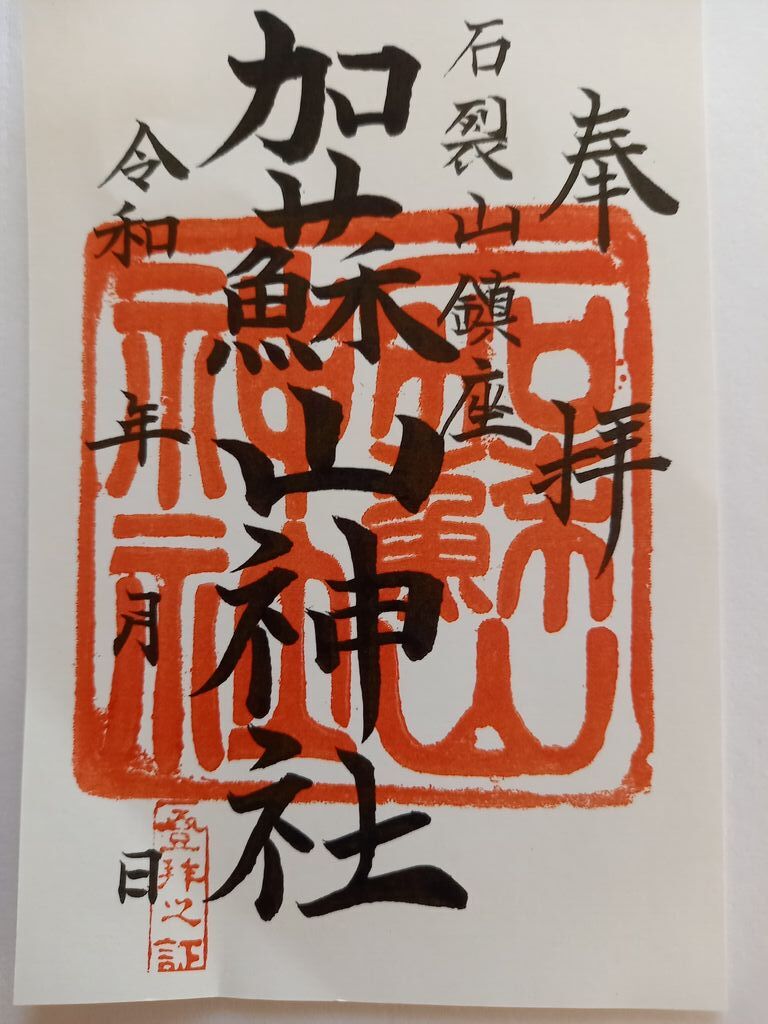 奉拝
石裂山鎮座
加蘇山神社
令和 年 月 日
加蘇山神社
登拝之証